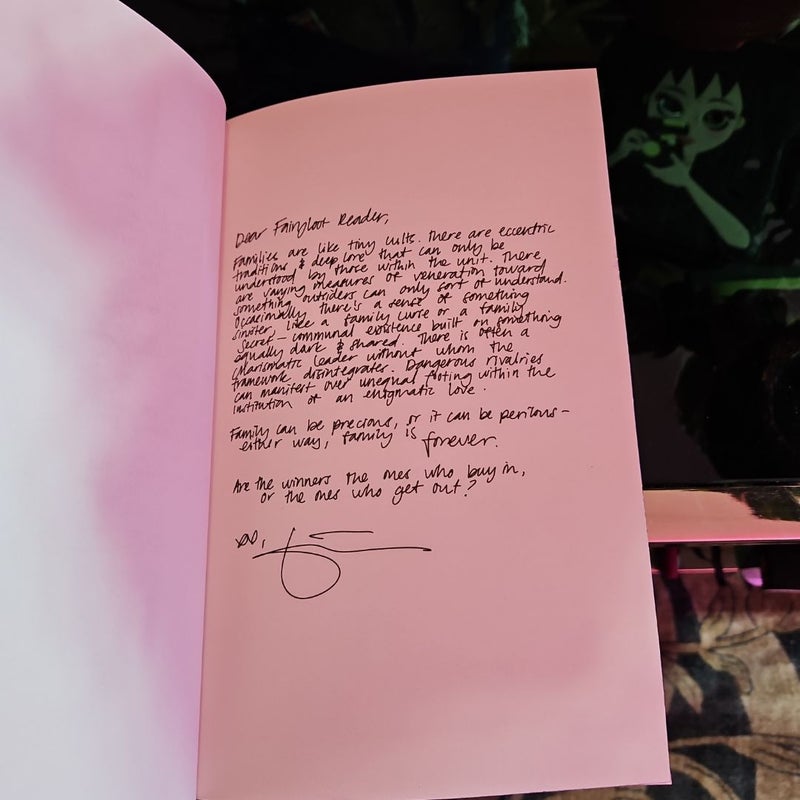 Dear Fairyloot Reader,
Families are like tiny cults. There are eccentric
traditions & deep lore that can only be
understood by those within the unit. There
are varying measures of veneration toward
something outsiders can only sort of understand.
Occasionally there's a sense of something
sinister, like a family curse or a family
secret – communal existence built on something
equally dark & shared. There is often a
charismatic leader without whom the
framework disintegrates. Dangerous rivalries
can manifest over unequal footing within the
institution of an enigmatic love.
Family can be precious, or it can be perilous –
either way, family is forever.
Are the winners the ones who buy in,
or the ones who get out?
xo,